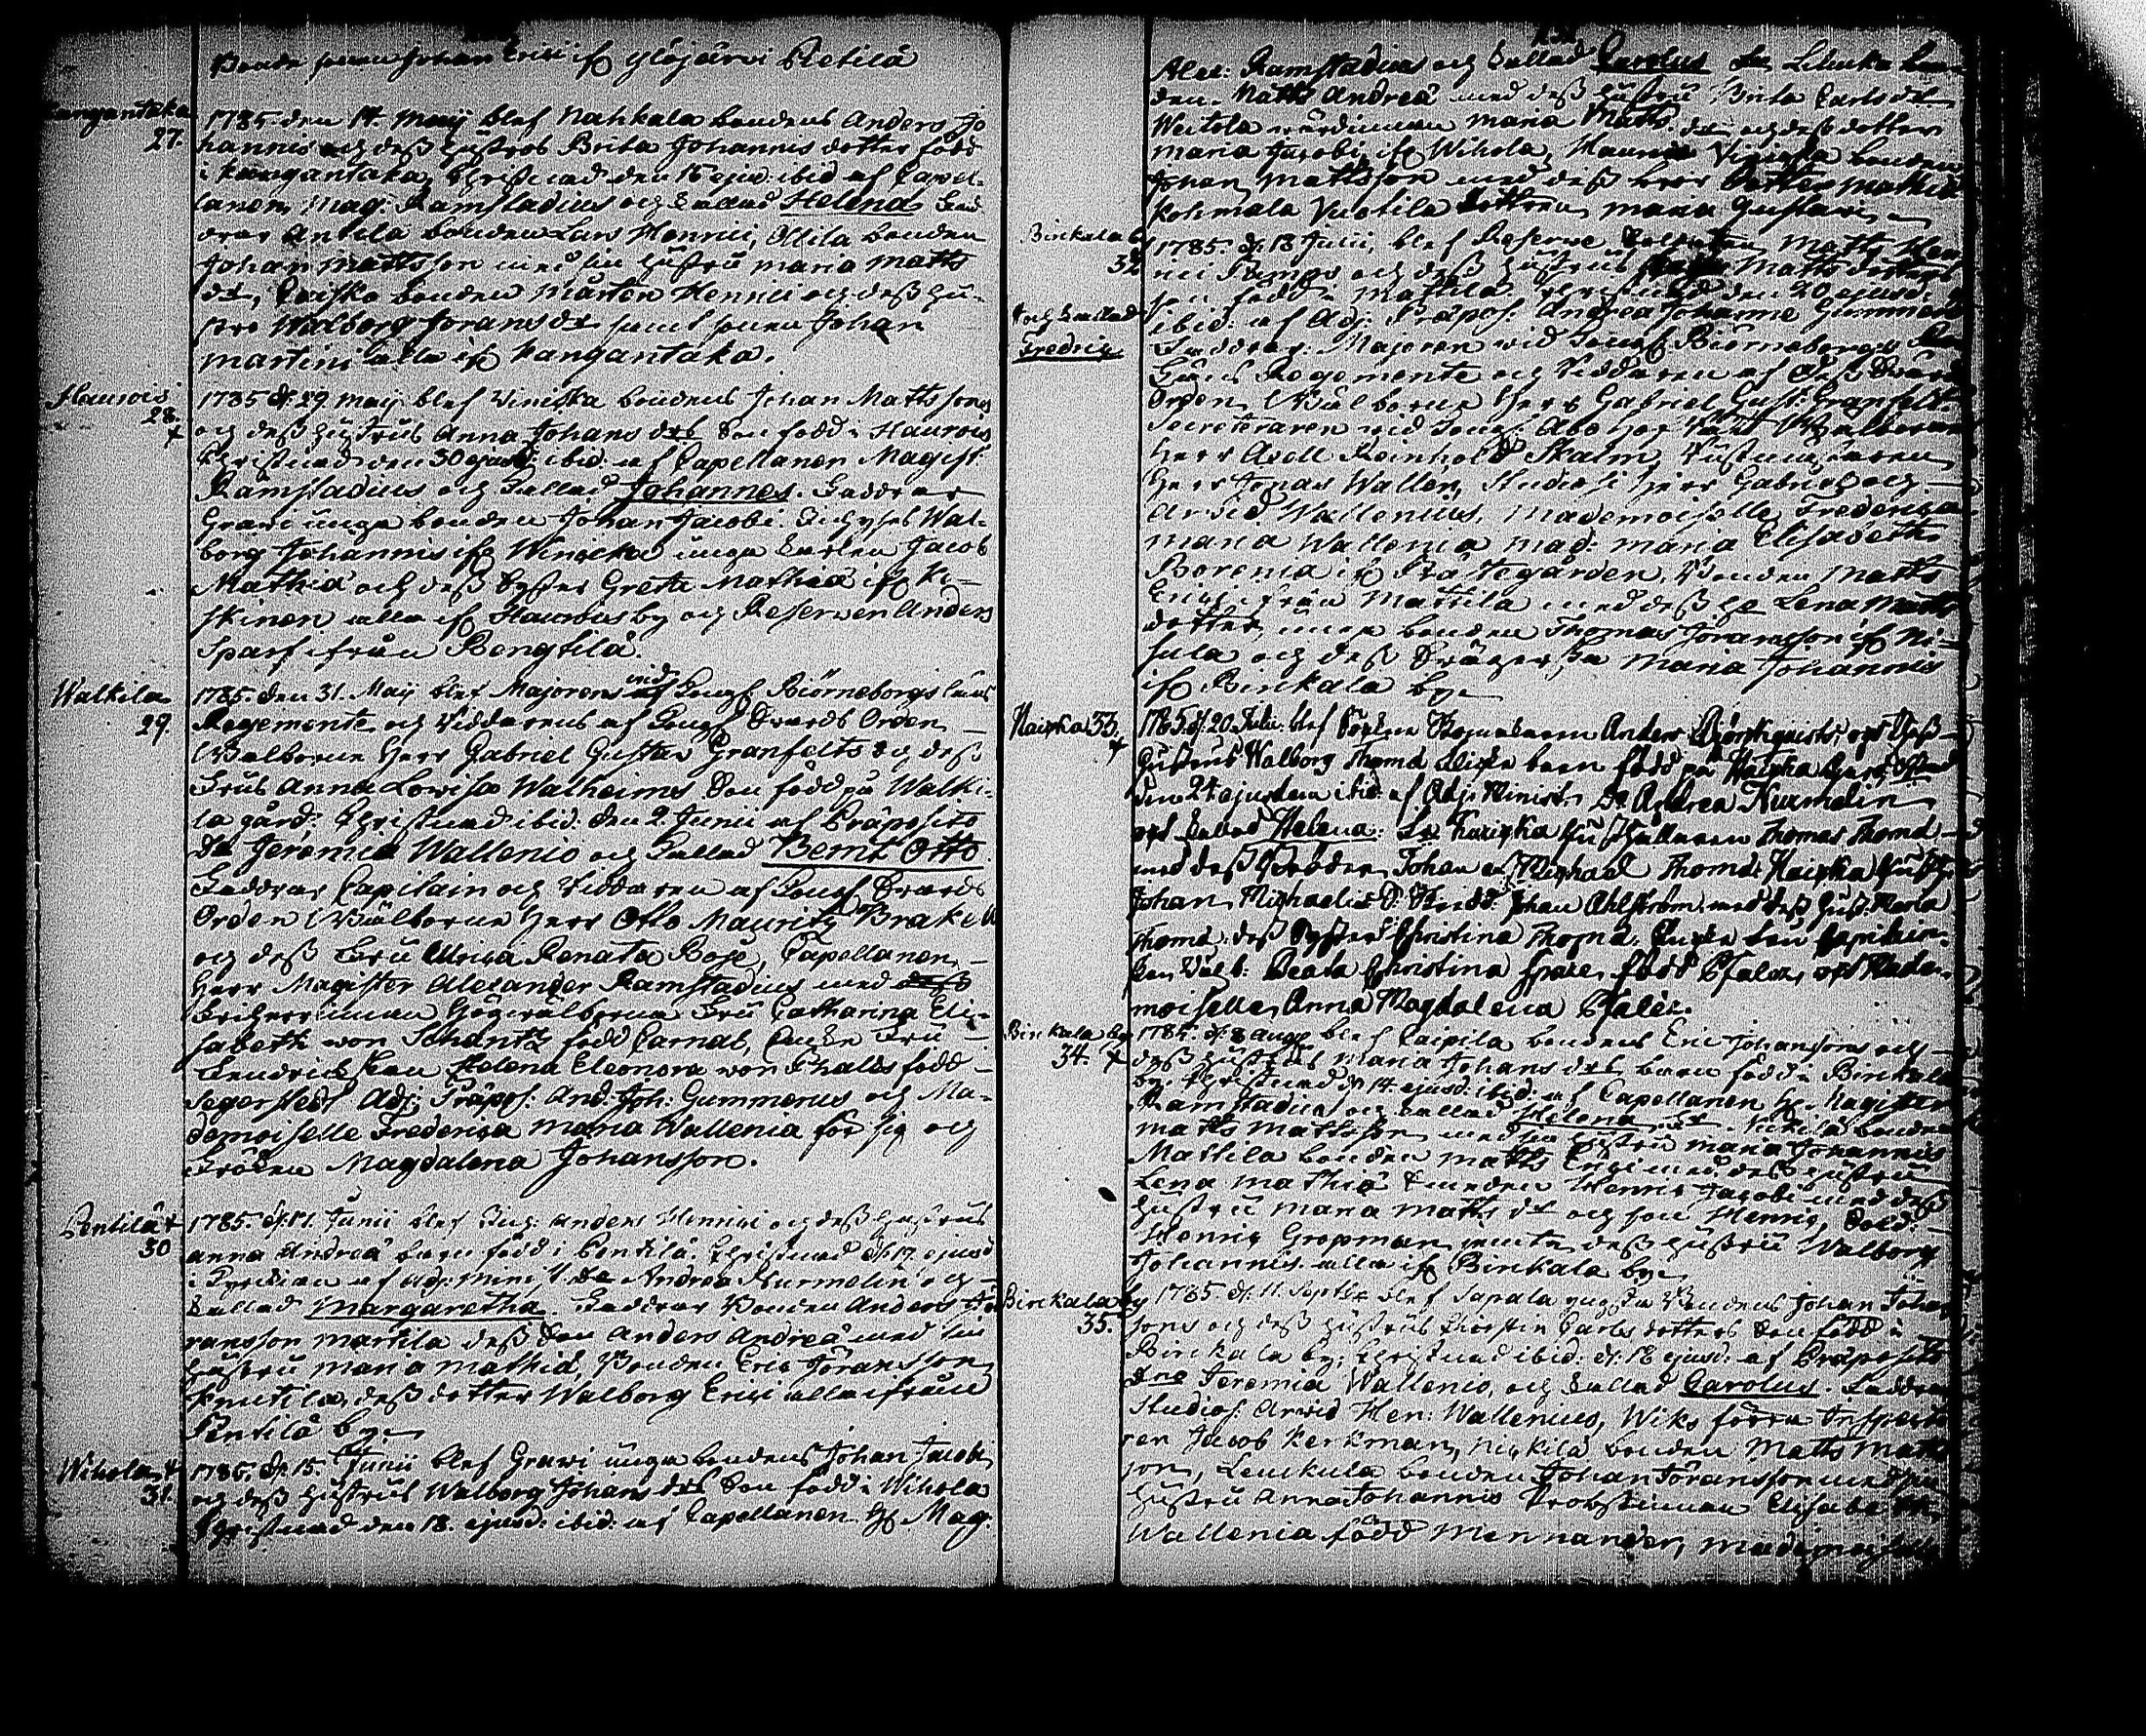 Bonde sonen Johan Erici ifr. Ylöjärvi Pietilä
Kangantaka 27.
1785 den 14. Maij blef Nahkala bondens Anders Jo
hannis och dess hustrus Brita Johannis dotter född
i Kangantaka, Christnad den 15 ejusd. ibid. af Capel-
lanen, Mag. Ramstadius och kallad Helena. Fad-
drar Anttila bonden Lars Henrici, Ollila bonden
Johan Mattsson med sin hustru Maria Matts
dr, bonden Mårten Henrici och dess hu-
stru Walborg Jörans dr samt sonen Johan
Martini alla ifr Kangantaka.
Hauvois 28.
1785 d. 29 Maij blef Winicka bondens Johan Matts sons
och dess hustrus Anna Johans drs son född i Haurois
Christnad den 30 ejusd. ibid. af Capellanen Magist.
Ramstadius och kallad Johannes. Faddrar
Grawi unga bonden Johan Jacobi. Wal-
borg Johannis ifr Winicka unga karlen Jacob
Mathiæ och dess syster Greta Mathiæ ifr Ki-
skinen alla ifr Haurois by och Reserven Anders
Sparf ifrån Bengtilä.
Walkila 29.
1785. den 31. Maij blef Majorens vid Kongl. Biörneborgs läns
Regemente och Riddarens af Kongl. Svärds Orden
Wälborne Herr Gabriel Gustav Granfelts och dess
Frus Anna Lovisa Walheims son född på Walki-
la gård: Christnad ibid. den 2 Junii af Præposito
Do Jeremia Wallenio och kallad Bernt Otto
Faddrar Capitain och Riddaren af Kongl. Svärds
Orden Wälborne Herr Otto Mauritz Brakel
och dess Fru Ulrica Renata Boje, Capellanen
Herr Magister Alexander Ramstadius med
Friherrinnan Högwälborna Fru Catharina Eli-
sabeth von Schantz född Carnal, Enke Fru
Helena Eleonora von Phalés född
Segerstedt Adj: Præpos: And: Joh: Gummerus och Ma-
demoiselle Frederica Maria Wallenia för sig och
Fröken Magdalena Johansson.
Pentilä 30
1785. d. 11. Junii blef Anders Henrici och dess hustrus
Anna Andreæ barn född i Pentilä. Christnad d. 17 ejusd
i af adj: minist do Andrea Nurmelin och
kallad Margaretha. Faddrar Bonden Anders Jö
ransson Martila dess son Anders Andreæ med sin
hustru Maria Mathiæ, Bonden Eric Jöransson
Knutila, dess dotter Walborg Erici alla ifrån
Pentilä by.
Wihola 31.
1785. d. 15. Junii blef Grawi unga bondens Johan Jacobi
och dess hustrus Walborg Johans drs son född i Wihola
Christnad den 18. ejusd: ibid: af Capellanen Hr Mag.
Alex: Ramstadius och kallad Carolus
den. Matts Andreæ med dess hustru Brita Carls dr
Weitola wärdinnan Maria Matts dr och dess dotter
Maria Jacobi ifr Wihola, Haurois Winicka bonden
Johan Mattsson med dess bror Petter Mathiæ
Kohmala Vuotila dottren Maria Gustavi.
Birkala by 32
1785. d. 18 Junii, blef Reserve Soldaten Matts Hen
rici och dess hustrus Matts dotters
son född i Mattila, Christnad den 20 ejusd.
och kallad Fredric
ibid: af Adj: Præpos: Andrea Johanne Gummero
Faddrar: Majoren vid Kongl. Biörneborgs
Läns Regemente och Riddaren af Kl. Svärds
Orden, Wälborne Herr Gabriel Gust: Granfelt.
Secreteraren vid Kongl. Åbo Hof Rätt Wälborne
Herr Axell Reinhold Skalm,
Herr Jonas Wallen, Studiosi Herr Gabriel och
Arvid Wallenius, Mademoiselle Frederica
Maria Wallenia Mad: Maria Elisabeth
Borenia ifr Prästegården, Bonden Matts
Erici ifrån Mattila med dess hu Lena Matts
dotter, unga bonden Thomas Jöransson ifr Ni-
jula och dess Maria Johannis
ifr Birkala by.
Haipha 33.
1785. d. 20 Julii blef Anders Björkquists och dess
hustrus Walborg Thomæ barn född på Haipha gård,
den 24 ejusdem ibid: af Adj: Ministr. Do Andrea Nurmelin
och kallad Helena. Thomas Thomæ
med dess Bröder Johan och Michael Thomæ Haipha
Johan Michaelis D. Johan Ahlström med dess hust. Maria
Thomæ, dess syster Christina Thomæ,
Wälb: Beata Christina född Pfaler och Made-
moisellen Anna Magdalena Pfaler.
Birkala by 34.
1785. d. 8 aug: blef Paipila bondens Eric Johanssons och
dess hustrus Maria Johans drs barn född i Birkala
by. Christnad d. 14 ejusd: ibid: af Capellanen Hr Magister
Ramstadius och kallad Helena. bonden
Matts Mattsson med sin hustru Maria Johannis
Mattila bonden Matts Erici med dess hustru
Lena Mathiæ Henric Jacobi med dess
hustru Maria Matts dr och son Henric, Sold.
Henric Gropman jemte dess hustru Walborg
Johannis alla ifr Birkala by.
Birkala by 35.
1785 d. 11. Septbr blef Sapala Bondens Johan Johans
sons och dess hustrus Kierstin Carls dotters son född i
Birkala by, Christnad ibid: d. 18 ejusd: af Præposito
Dno Jeremia Wallenio, och kallad Carolus. Faddrar
Studios: Arvid Hen: Wallenius, Wiks förra Inspecto
ren Jacob Kerkman, Nickilä bonden Matts Matts
son, Leuckula bonden Johan Jöransson med sin
hustru Anna Johannis Probstinnan Elisabeth
Wallenia född Mennander, mademoiselle